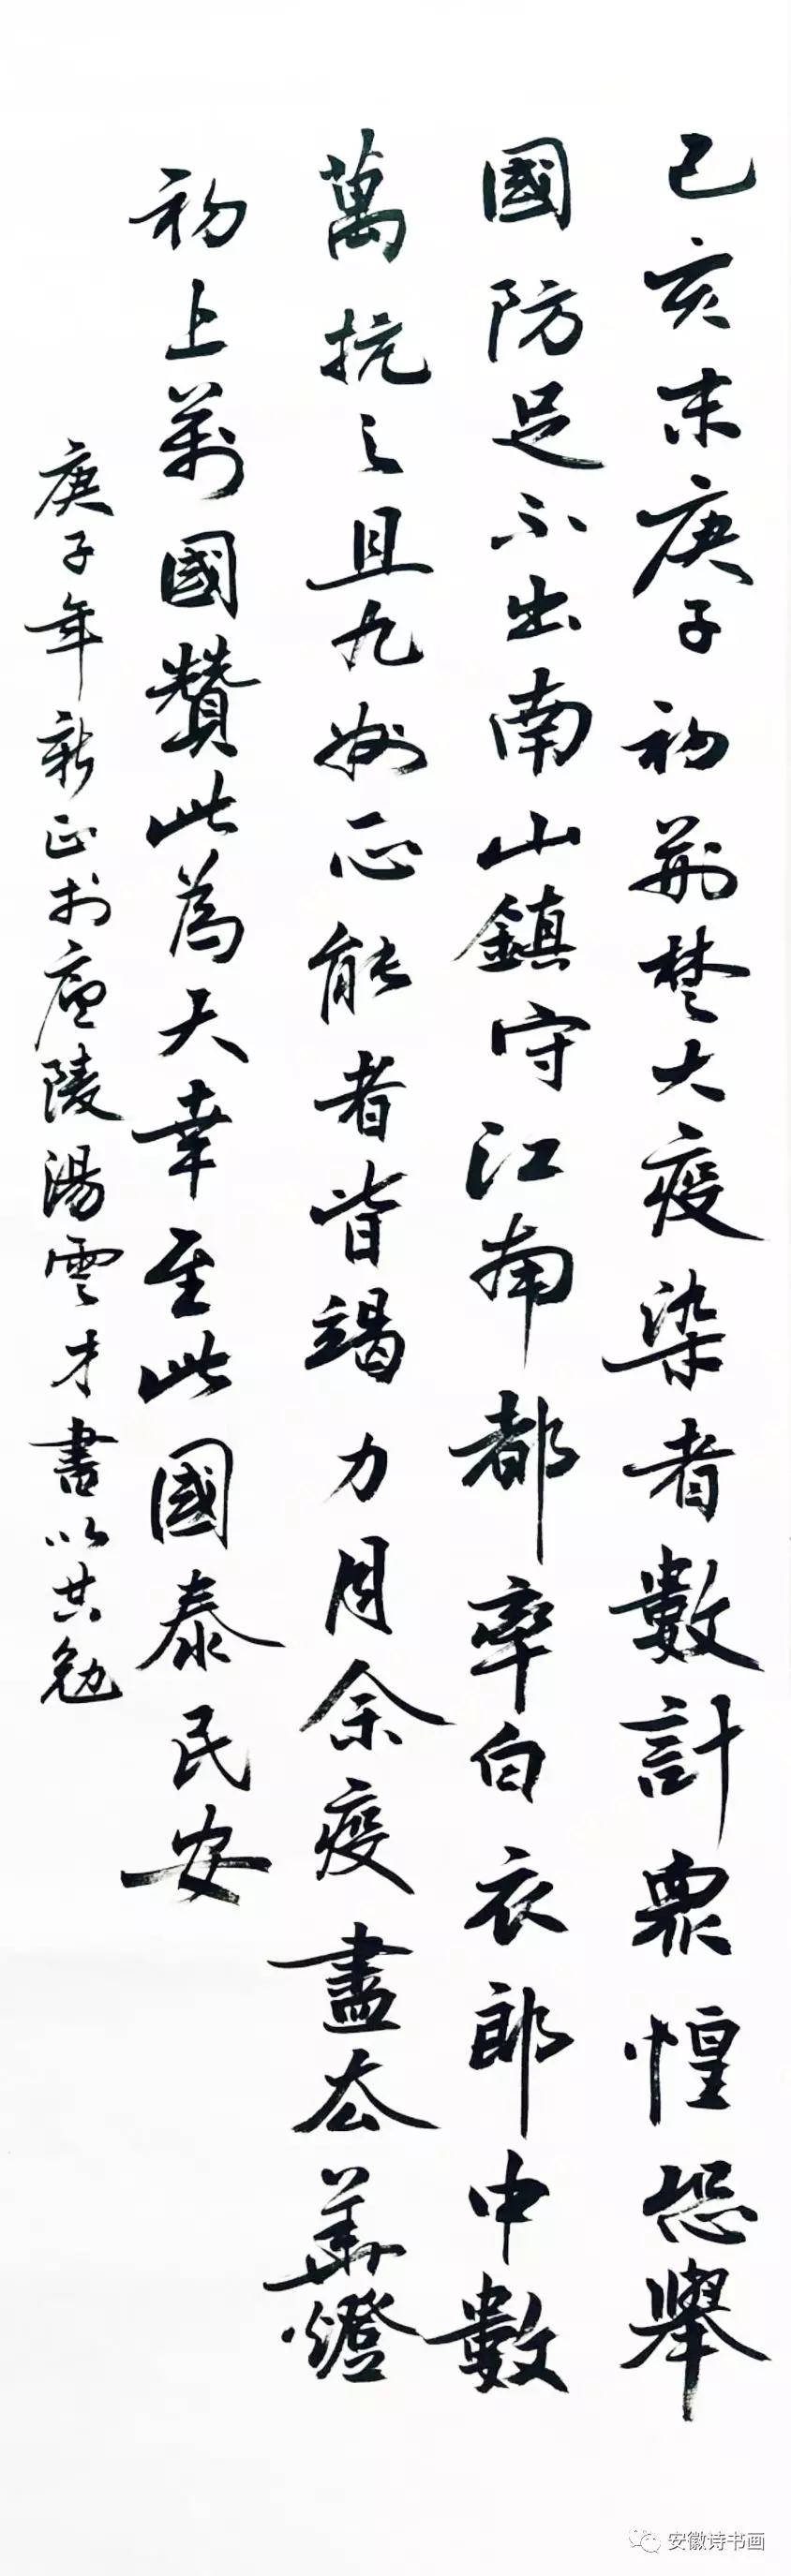 己亥末庚子初荊楚大疫染者數計眾惶恐舉
國防足不出南山鎮守江南都率白衣郎中數
萬抗之且九州正能者皆竭力月余疫盡去華燈
初上萬國贊此為大幸至此國泰民安
庚子年新正於廬陵湯雲才書以共勉
安徽诗书画